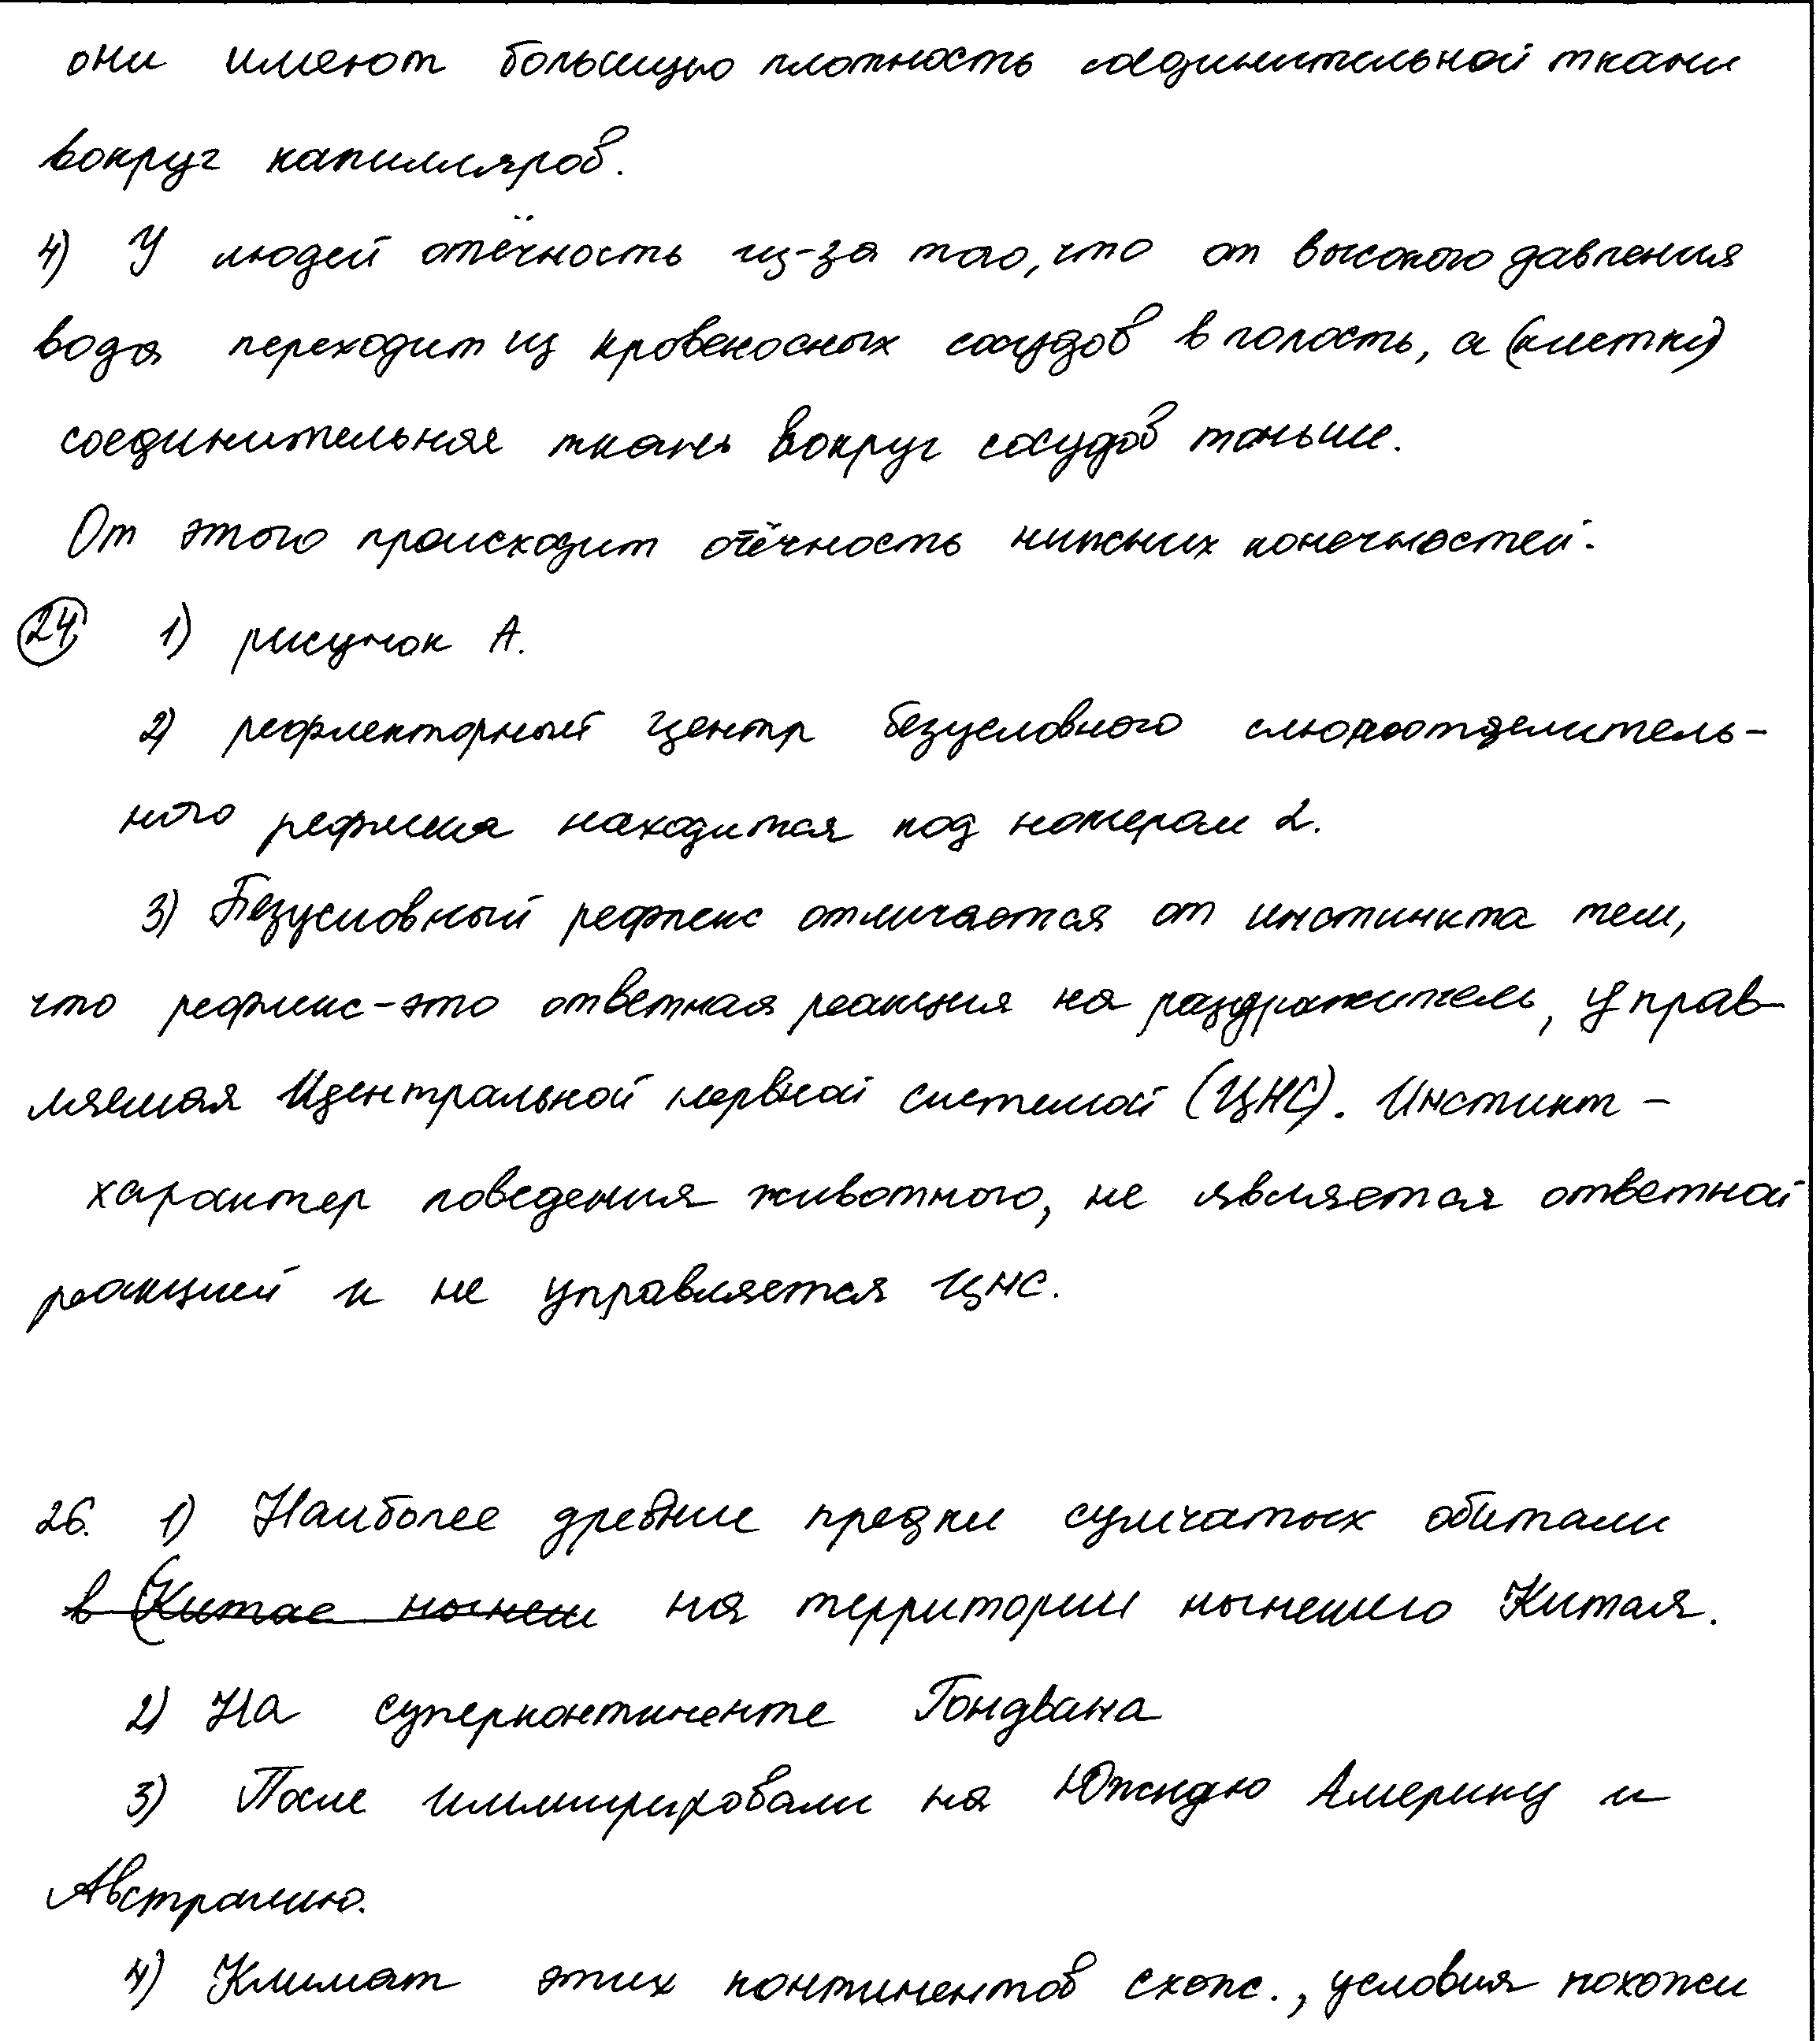 они имеют большую плотность соединительной ткани
вокруг капилляров.
4) У людей отёчность из-за того, что от высокого давления
вода переходит из кровеносных сосудов в полость, а (клетки)
соединительная ткань вокруг сосудов тоньше.
От этого происходит отёчность нижних конечностей.
24 1) рисунок А.
2) рефлекторный центр безусловного слюноотделитель-
ного рефлекса находится под номером 2.
3) Безусловный рефлекс отличается от инстинкта тем,
что рефлекс - это ответная реакция на раздражитель, управ
ляемая Центральной нервной системой (ЦНС). Инстинкт -
характер поведения животного, не является ответной
реакцией и не управляется ЦНС.
26. 1) Наиболее древние предки сумчатых обитали
в (Китае нынеш на территории нынешнего Китая.
2) На суперконтиненте Гондвана
3) После иммигрировали на Южную Америку и
Австралию.
4) Климат этих континентов схож., условия похожи